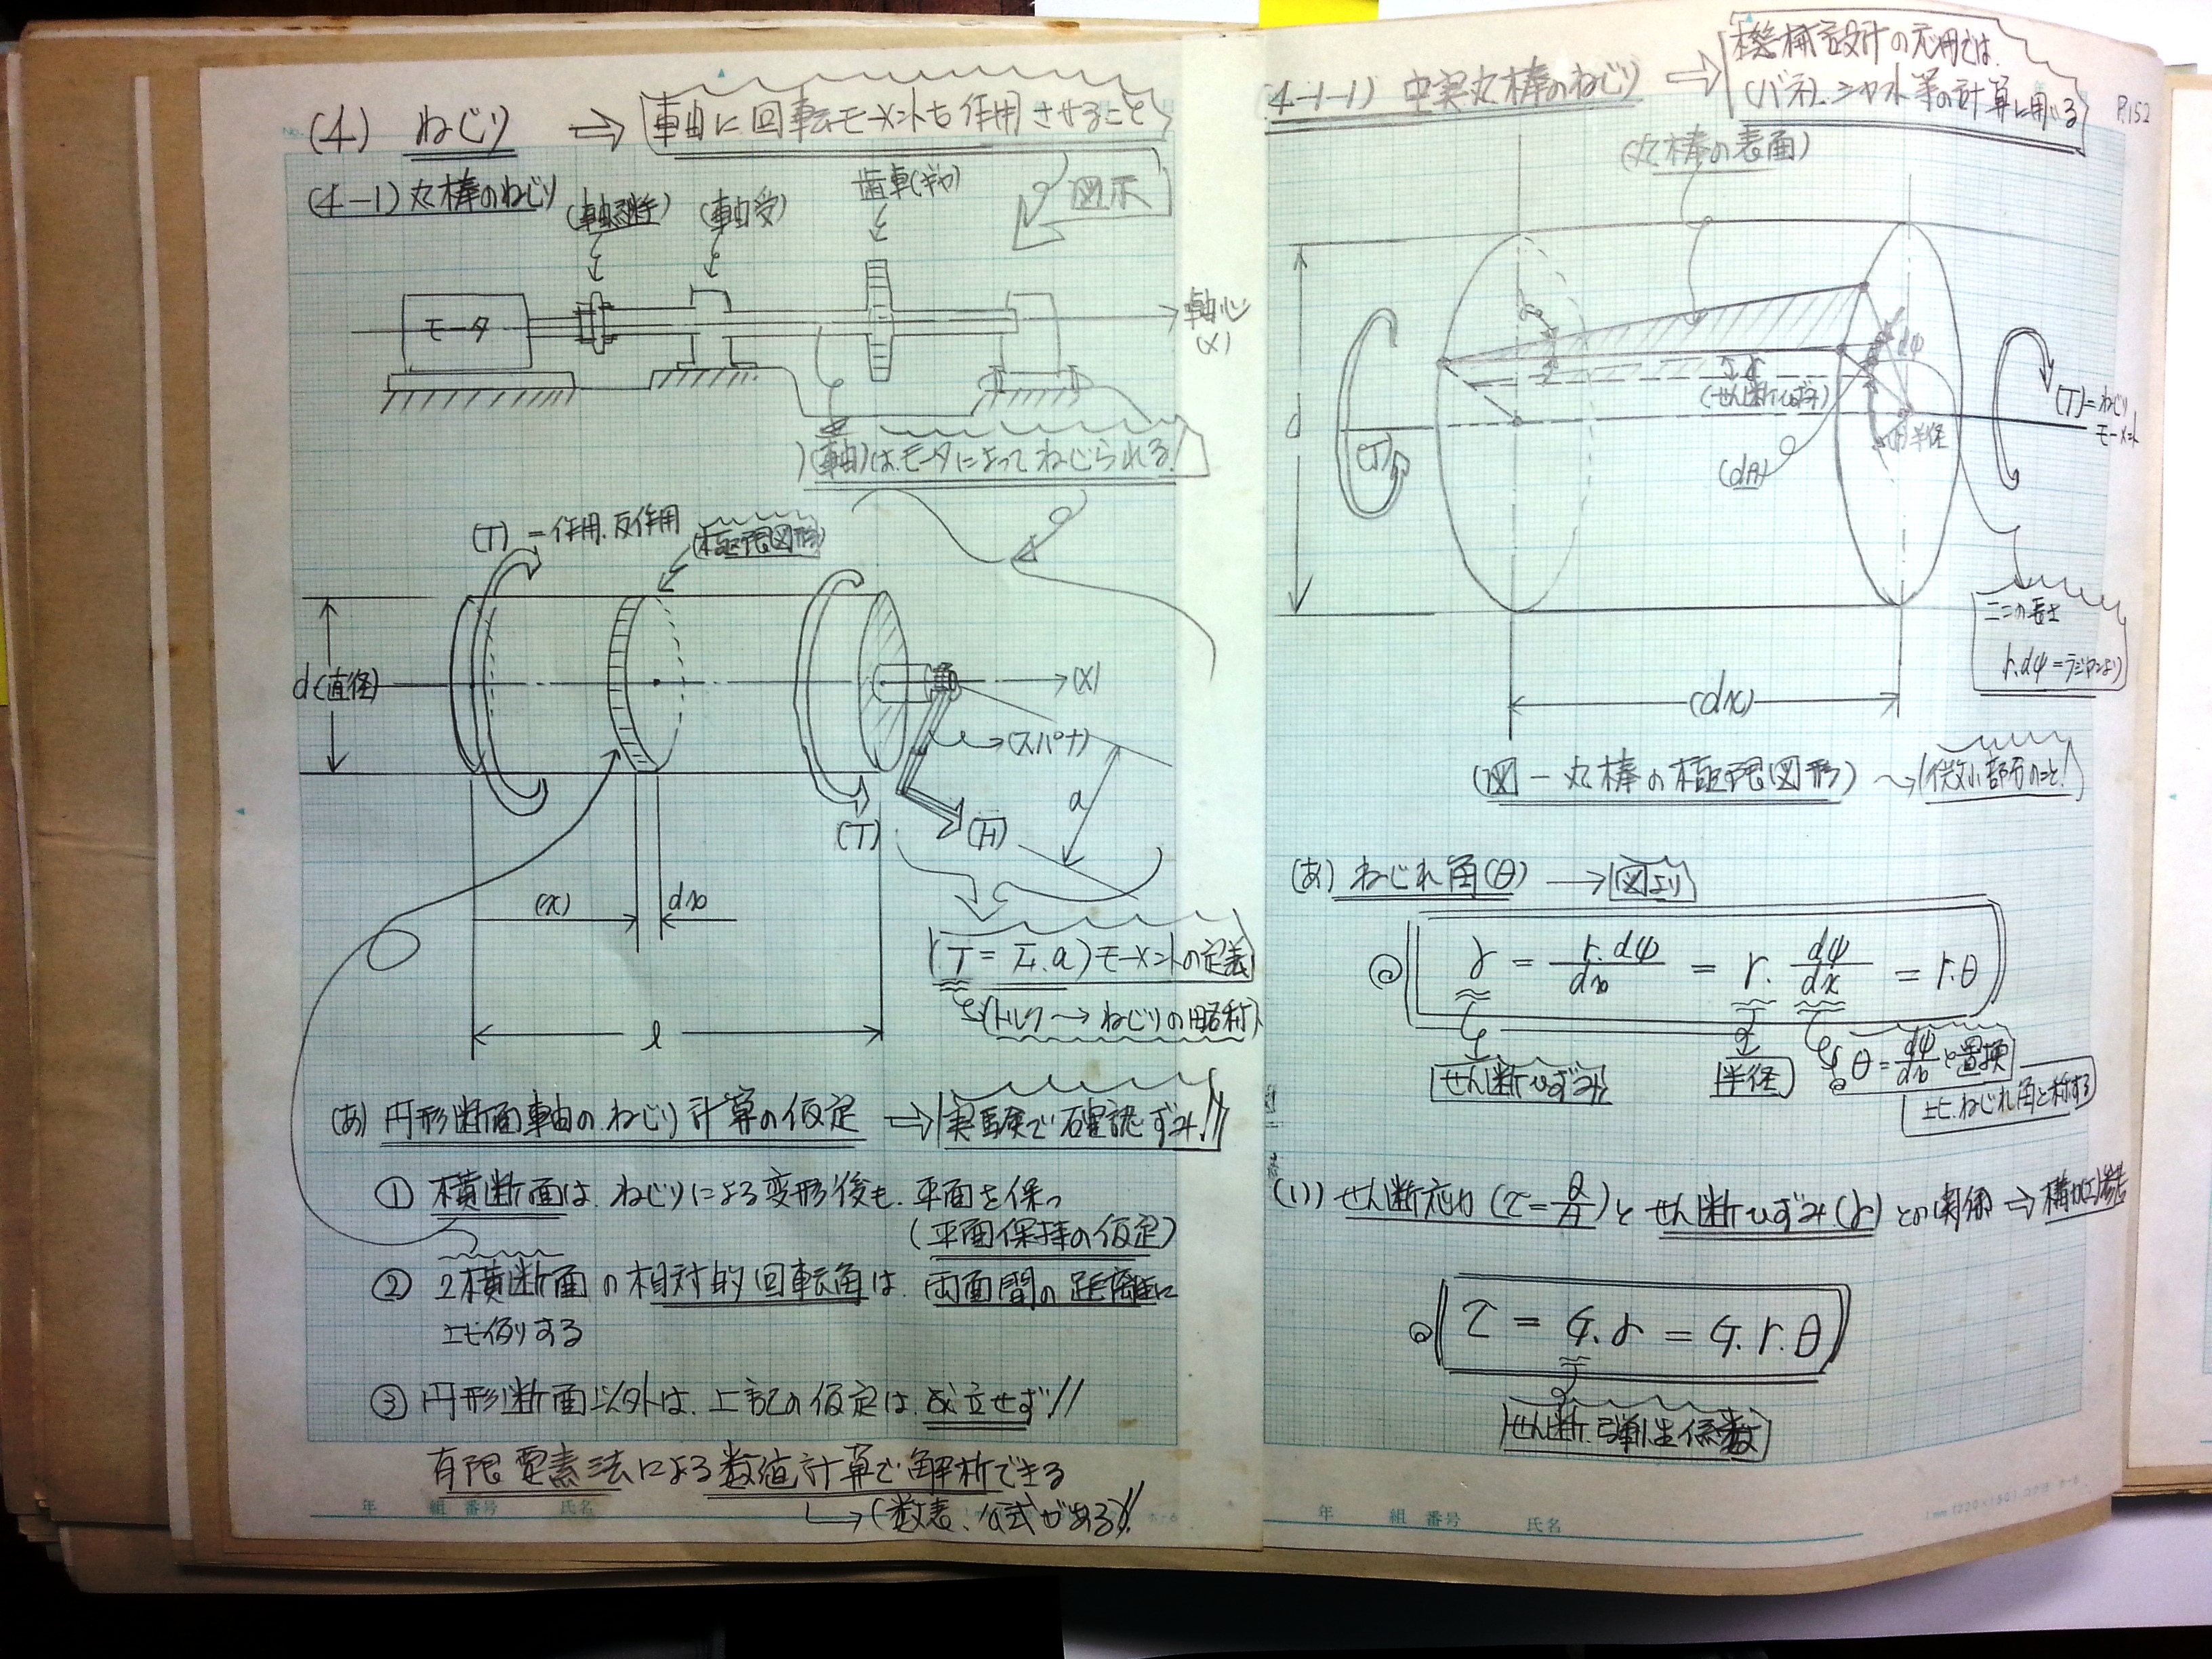 (4) ねじり ⇒ 軸に回転モーメントを作用させること
(4-1) 丸棒のねじり
(軸継手)
(軸受)
歯車(ギヤ)
図示
モータ
軸心
(x)
(軸)は、モータによってねじられる!
(T) = 作用、反作用
(極限図形)
d(直径)
(x)
(スパナ)
a
(F)
(T)
(x)
dx
l
(T = F.a) モーメントの定義
(トルク → ねじりの略称)
(あ) 円形断面軸の、ねじり計算の仮定 ⇒ 実験で確認ずみ!!
① 横断面は、ねじりによる変形後も、平面を保つ
(平面保持の仮定)
② 2横断面の相対的回転角は、両面間の距離に
比例する
③ 円形断面以外は、上記の仮定は、成立せず!!
有限要素法による数値計算で解析できる
→ (数表、公式がある)!!
年 組 番号 氏名
(4-1-1) 中実丸棒のねじり ⇒ 機械設計の応用では、
(バネ)、シャフト等の計算に用いる
P.152
(丸棒の表面)
d
(T)
γ
(せん断ひずみ)
dψ
(r)半径
(dA)
(T) = ねじり
モーメント
ここの長さ
r.dψ = ラジアンより
(dx)
(図 - 丸棒の極限図形) → (微小部分のこと!)
(あ) ねじれ角(θ) → 図より
γ = r.dψ/dx = r. dψ/dx = r.θ
せん断ひずみ
半径
θ = dψ/dx と置換
比ねじれ角と称する
(い) せん断応力 (τ = Q/A) と せん断ひずみ (γ) との関係 ⇒
τ = G.γ = G.r.θ
せん断弾性係数
年 組 番号 氏名